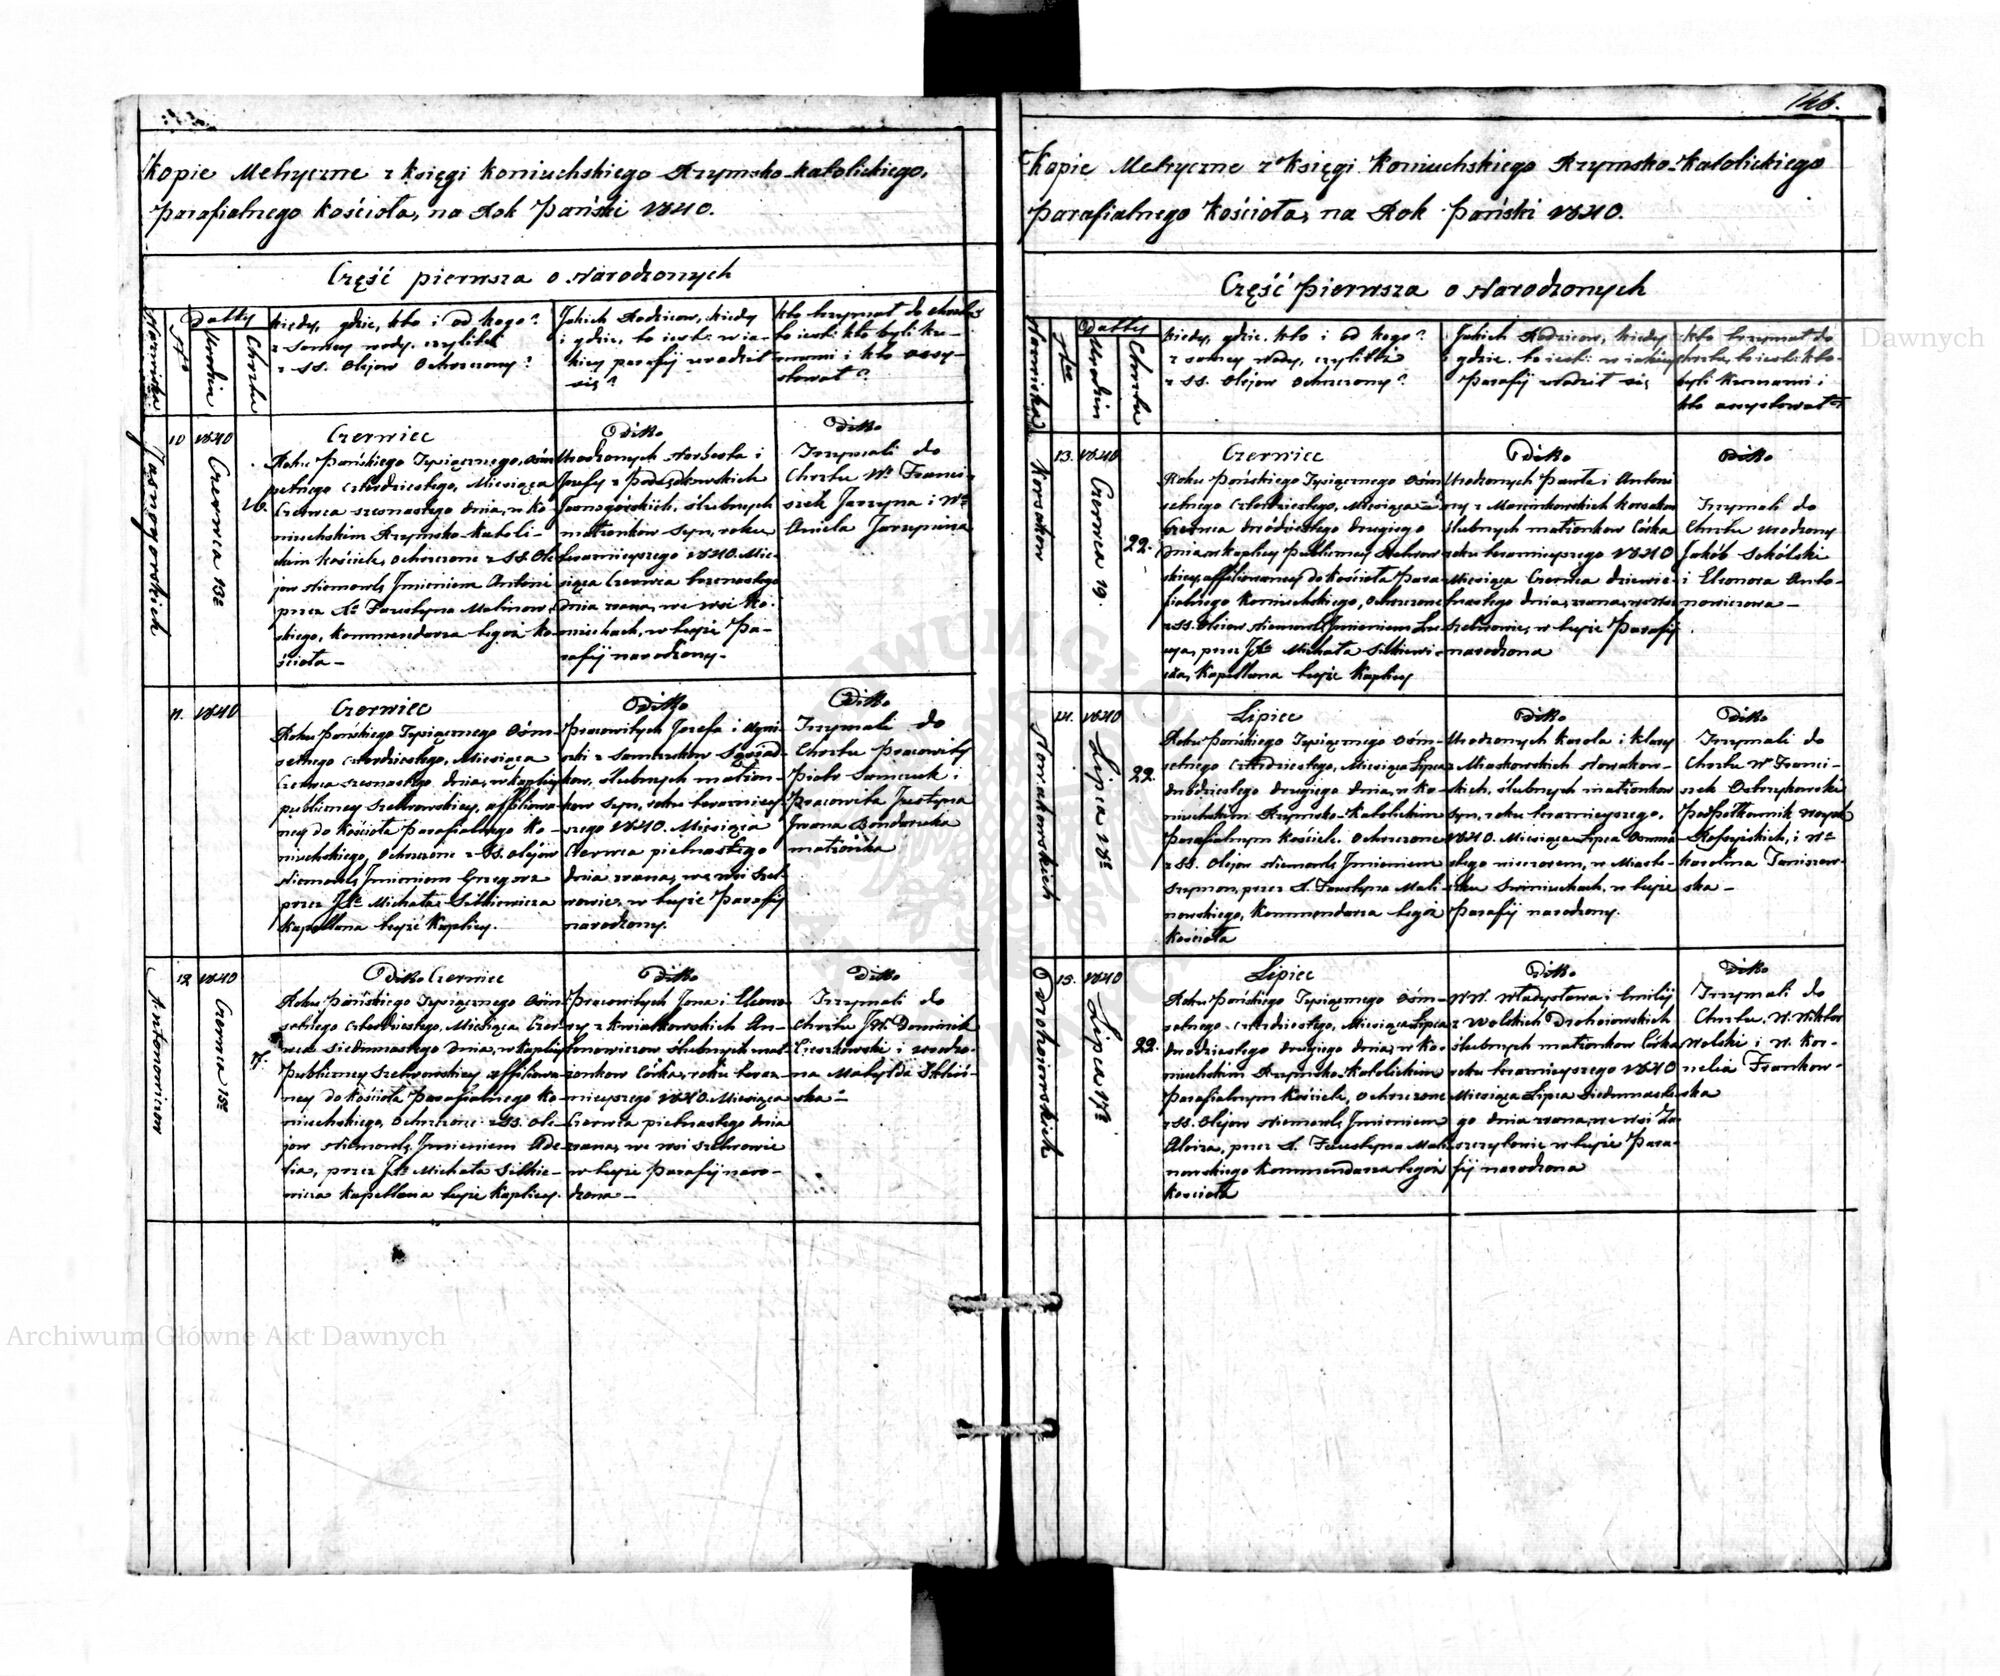 Kopie Metryczne z Księgi Koniuchskiego Rzymsko-Katolickiego,
Parafialnego Kościoła, na Rok Pański 1840.
Część pierwsza o Narodzonych
Datty
No
Urodzin
Chrztu
Kiedy, gdzie, kto i od kogo?
z samey wody, czyliteż
z SS. Olejow Ochrzczony?
Jakich Rodzicow, kiedy
i gdzie, to iest: w ia-
kiey parafij urodził
się?
Kto trzymał do chrztu
to iest: kto byli ku-
mami i kto assy-
stował?
Jasnogorskich
10
1840
Czerwca 13e
16.
Czerwiec
Roku Pańskiego Tysiącznego, Ośm
setnego Czterdziestego, Miesiąca
Czerwca szesnastego dnia, w Ko
niuchskim Rzymsko-Katoli-
ckim Kościele, Ochrzczone z SS. Ole
jow Niemowle, Jmieniem Antoni
przez X. Faustyna Malinow-
skiego, Kommendarza tegoż Ko-
ścioła -
Ditto
Urodzonych Norberta i
Jozefy z Podsędkowskich
Jasnogórskich, ślubnych
małżonkow Syn, roku
teraznieyszego 1840. Mie-
siąca Czerwca trzynastego
Dnia zrana, we wsi Ko-
niuchach, w teyże Pa-
rafij narodzony.
Ditto
Trzymali do
Chrztu W. Franci-
szek Jarzyna i Wa
Aniela Jarzynina
11.
1840
Czerwiec
Roku Pańskiego Tysiącznego Ośm-
setnego Czterdziestego, Miesiąca
Czerwca szesnastego, dnia, w Kaplicy
publiczney Szelwowskiey, affiliowa-
ney do Kościoła Parafialnego Ko-
niuchskiego, Ochrzczone z SS. Olejow
Niemowle, Jmieniem Grzegorz
przez JX. Michała Sitkiewicza
Kapellana teyże Kaplicy.
Ditto
Pracowitych Jozefa i Agni-
szki z Samczukow
kow, ślubnych małżon-
kow Syn, roku teraźniey-
szego 1840. Miesiąca
Czerwca pietnastego
dnia zrana, we wsi Szel-
wowie, w teyże Parafij
narodzony.
Ditto
Trzymali do
Chrztu Pracowity
Piotr Samczuk i
Pracowita Justyna
Jwana Bondarczuka
małżonka
Antonowiczow
12
1840
Czerwca 15e
17.
Ditto Czerwiec
Roku Pańskiego Tysiącznego Ośm-
setnego Czterdziestego, Miesiąca Czer-
wca siedmnastego dnia, w Kaplicy
Publiczney Szelwowskiey affiliowa-
ney do Kościoła Parafialnego Ko-
niuchskiego, Ochrzczone z SS. Ole-
jow Niemowle, Jmieniem Ade-
lia, przez JX. Michała Sitkie-
wicza Kapellana teyże Kaplicy.
Ditto
Pracowitych Jana i Eleono-
ry z Kwiatkowskich An-
tonowiczow ślubnych mał-
żonkow Córka, roku teraz-
nieyszego 1840. Miesiąca
Czerwca pietnastego dnia
zrana, we wsi Szelwowie
w teyże Parafij naro-
dzona -
Ditto
Trzymali do
Chrztu JW. Dominik
Cieszkowski i urodzo-
na Matylda
ska -
146.
Kopie Metryczne z Księgi Koniuchskiego Rzymsko-Katolickiego
Parafialnego Kościoła, na Rok Pański 1840.
Część Pierwsza o Narodzonych
Datty
Urodzin
Chrztu
Kiedy, gdzie, kto i od kogo?
z samey wody, czyliteż
z SS. Olejow Ochrzczony?
Jakich Rodzicow, kiedy
gdzie, to iest: w iakiey
Parafij urodził się
Kto trzymał do
chrztu, to iest: kto
byli Kumami i
kto assystował?
Korsakow
13.
1840
Czerwca 19.
22.
Czerwiec
Roku Pańskiego Tysiącznego Ośm-
setnego Czterdziestego, Miesiąca
Czerwca dwódziestego drugiego
dnia, w Kaplicy Publiczney Szelwow-
skiey, affiliowaney do Kościoła Para-
fialnego Koniuchskiego, Ochrzczone
z SS. Olejow Niemowle, Jmieniem Lu-
cya, przez JX. Michała Sitkiewi-
cza, Kapellana teyże Kaplicy
Ditto
Urodzonych Pawła i Antoni
ny z Marcinkowskich Korsakow
ślubnych małżonkow Córka
roku teraznieyszego 1840
Miesiąca Czerwca dziewie-
tnastego dnia, zrana, we wsi
Szelwowie, w teyże Parafij
narodzona
Ditto
Trzymali do
Chrztu Urodzony
Jakób Sokólski
i Eleonora Anto-
nowiczowa -
Nowakowskich
14.
1840
Lipca 18e
22.
Lipiec
Roku Pańskiego Tysiącznego Ośm-
setnego Czterdziestego, Miesiąca Lipca
dwódziestego drugiego dnia, w Ko-
niuchskim Rzymsko-Katolickim
Parafialnym Kościele, Ochrzczone
z SS. Olejow Niemowle, Jmieniem
Szymon, przez X. Faustyna Mali-
nowskiego, Kommendarza tegoż
Kościoła
Ditto
Urodzonych Karola i Klary
z Miaskowskich Nowakow-
skich, ślubnych małżonkow
Syn, roku teraznieyszego,
1840. Miesiąca Lipca Osmna-
stego wieczorem, w Miaste-
czku Swiniuchach, w teyże
Parafij narodzony.
Ditto
Trzymali do
Chrztu W. Franci-
szek Ostrzykowski
Podpółkownik woysk
Rossyiskich, i Wa
Karolina Taniszew-
ska -
Drohoiowskich
15.
1840
Lipca 17e
22.
Lipiec
Roku Pańskiego Tysiącznego Ośm-
setnego Czterdziestego, Miesiąca Lipca
dwodziestego drugiego dnia, w Ko-
niuchskim Rzymsko-Katolickim
Parafialnym Kościele, Ochrzczone
z SS. Olejow Niemowle, Jmieniem
Aloiza, przez X. Faustyna Mali-
nowskiego Kommendarza tegoż
Kościoła
Ditto
WW. Władysława i Emilij
z Wolskich Drohoiowskich
ślubnych małżonkow Córka
roku teraznieyszego 1840
Miesiąca Lipca Siedmnaste-
go dnia zrana, we wsi Za-
szczytowie w teyże Para-
fij narodzona
Ditto
Trzymali do
Chrztu W. Wiktor
Wolski i W. Kor-
nelia Frankow-
ska
Archiwum Główne Akt Dawnych